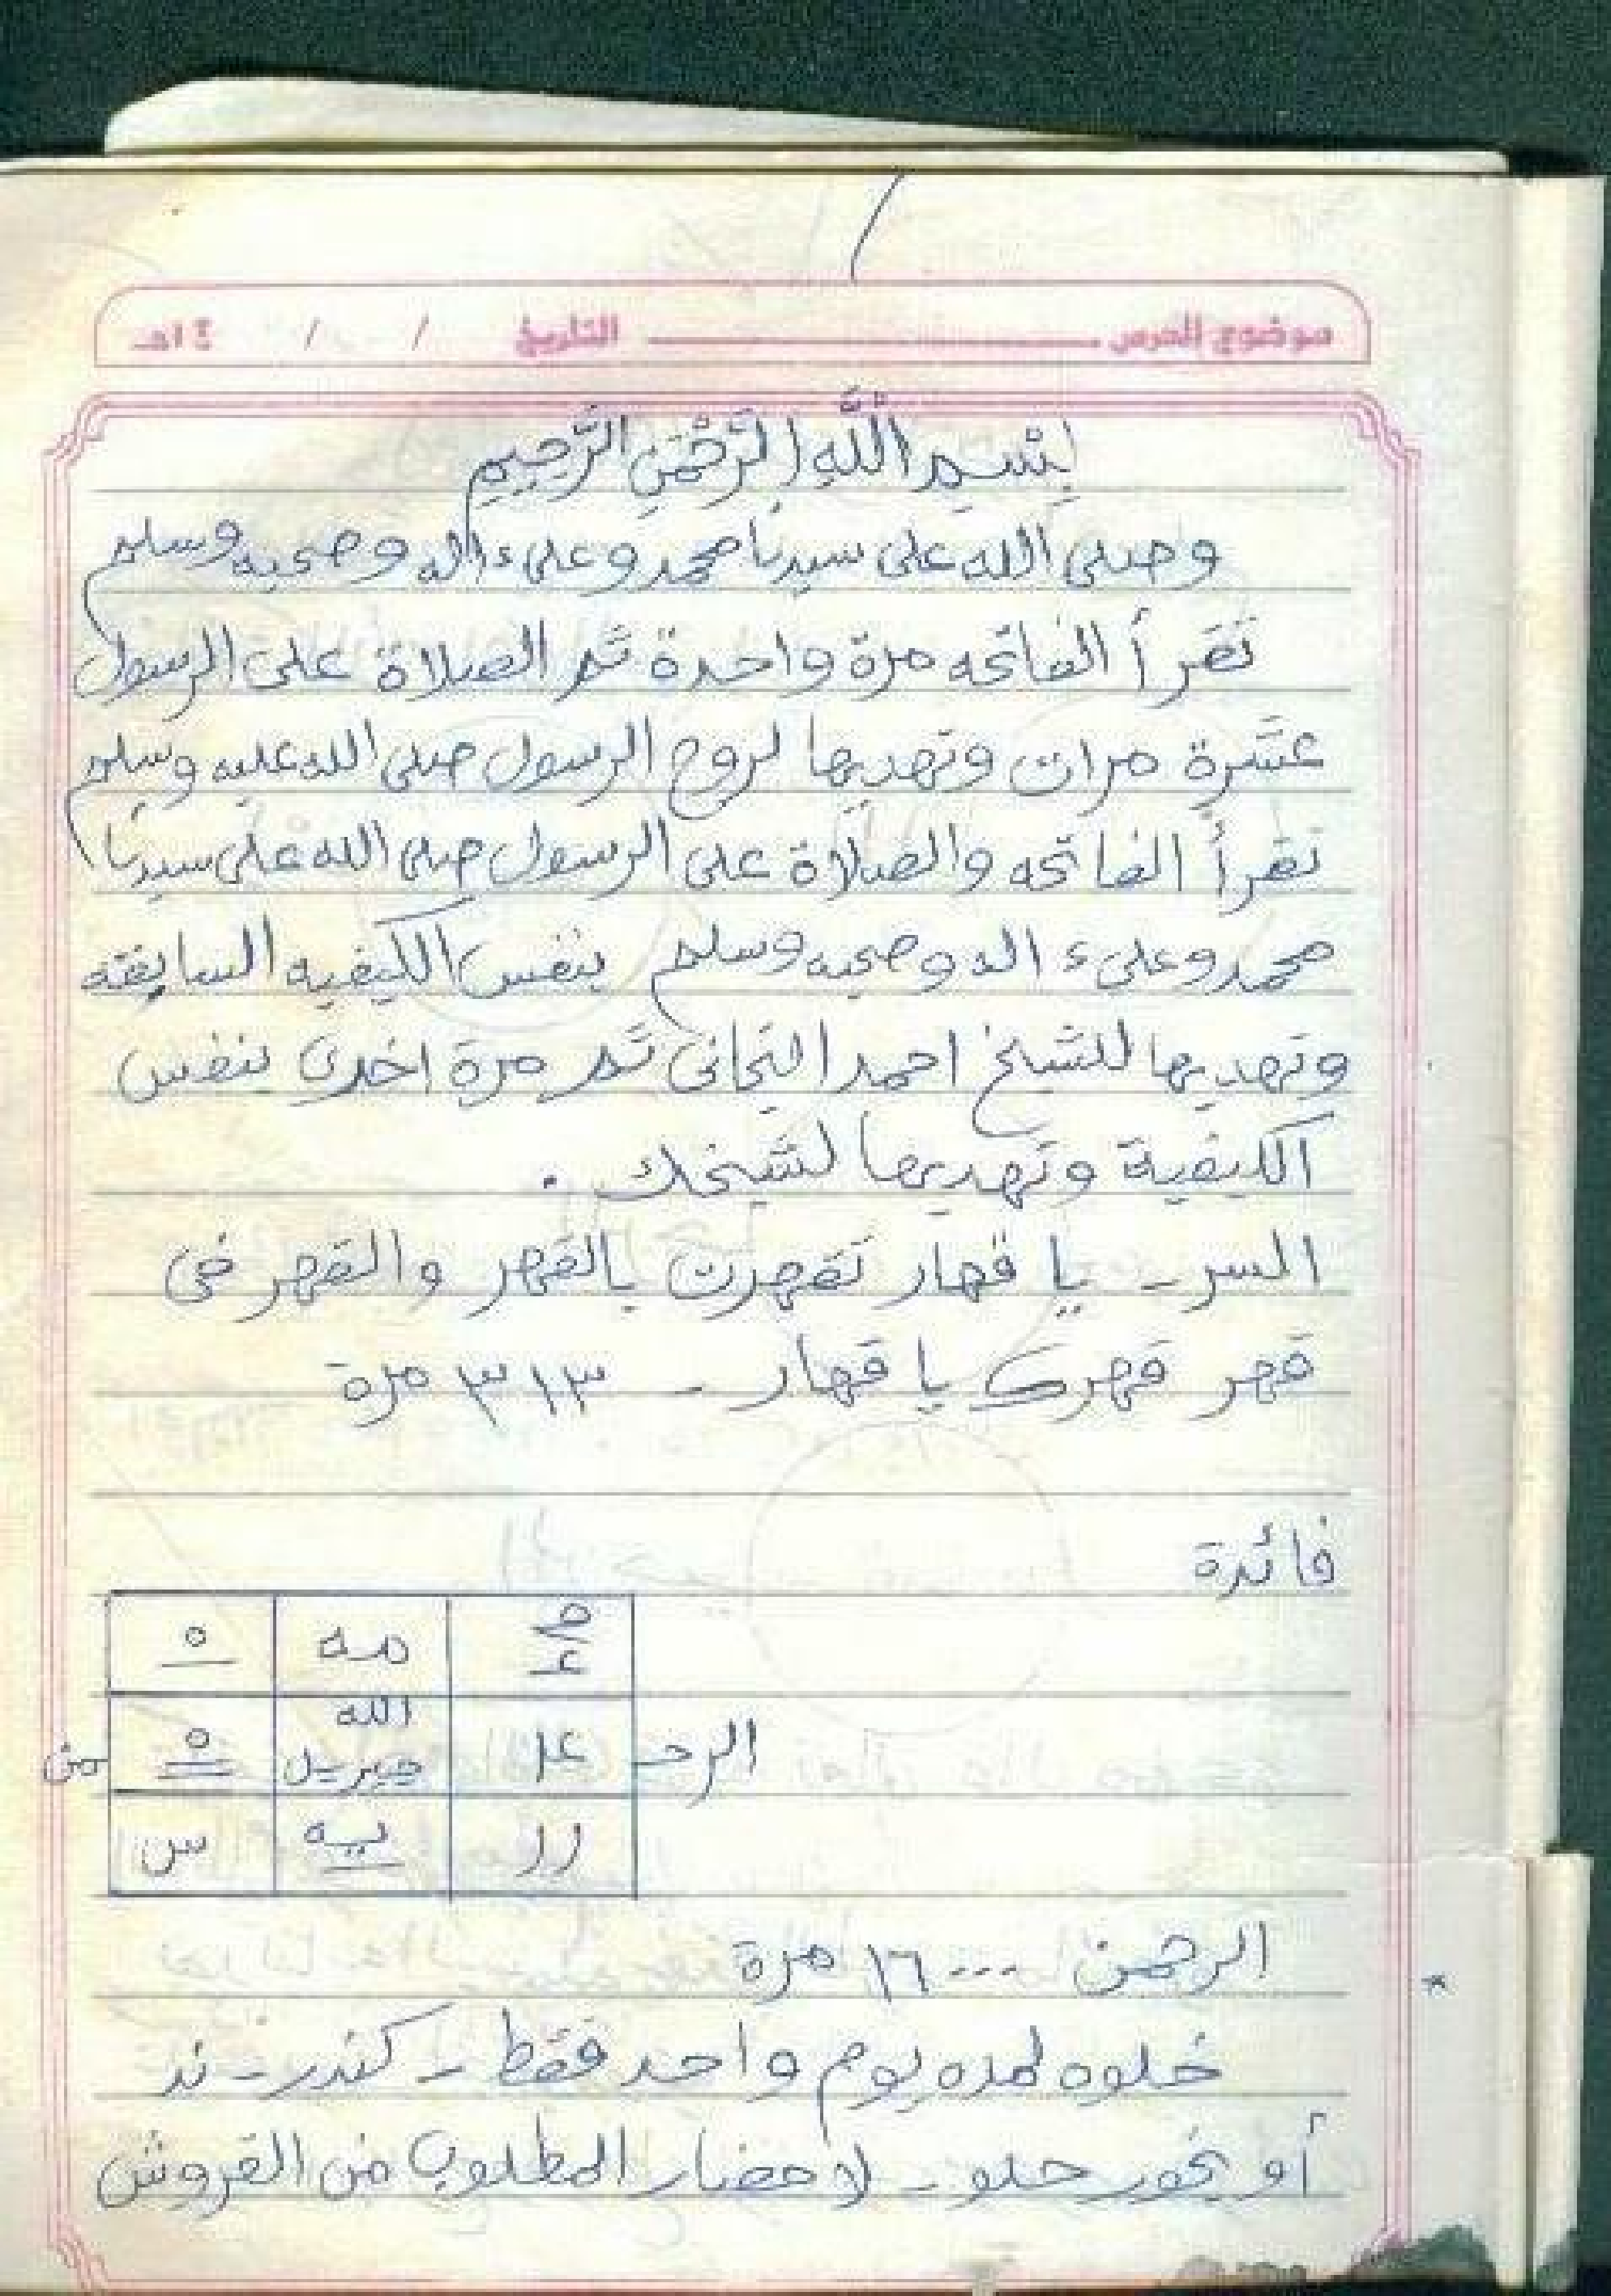 موضوع الدرس التاريخ / / ١٤هـ
بِسْمِ اللَّهِ الرَّحْمَنِ الرَّحِيمِ
وصلى الله على سيدنا محمد وعلى ءاله وصحبه وسلم
تقرأ الفاتحه مرة واحدة ثم الصلاة على الرسول
عشرة مرات وتهديها لروح الرسول صلى الله عليه وسلم
تقرأ الفاتحه والصلاة على الرسول صلى الله على سيدنا
محمد وعلى ءاله وصحبه وسلم بنفس الكيفيه السابقته
وتهديها للشيخ احمد التجانى ثم مرة اخرى بنفس
الكيفية وتهديها لشيخك .
السر - يا قهار تقهرت بالقهر والقهر فى
قهر قهرك يا قهار - ٣١٣ مرة
فائدة
مه ٥
الرحـ ١٤ الله جبريل ٥ ـمن
رر يه س
الرحمن ... ١٦ مرة
*
خلوه لمده يوم واحد فقط - كندر - ند
أو بخور حلو - لاحضار المطلوب من القروش